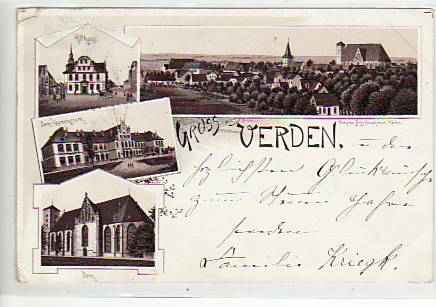 Rathaus.
Dom-Gymnasium
Dom.
GRUSS
VERDEN,
u. die
herzlichsten Glückwünsche
zum Neuen Jahre
senden
Familie Kriegk.